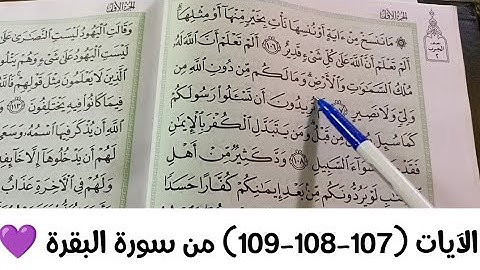 الجزء الأول
مَا نَنسَخْ مِنْ ءَايَةٍ أَوْ نُنسِهَا نَأْتِ بِخَيْرٍ مِّنْهَآ أَوْ مِثْلِهَآ
أَلَمْ تَعْلَمْ أَنَّ ٱللَّهَ عَلَىٰ كُلِّ شَىْءٍ قَدِيرٌ ١٠٦ أَلَمْ تَعْلَمْ أَنَّ ٱللَّهَ لَهُۥ
مُلْكُ ٱلسَّمَٰوَٰتِ وَٱلْأَرْضِ وَمَا لَكُم مِّن دُونِ ٱللَّهِ مِن
وَلِىٍّ وَلَا نَصِيرٍ ١٠٧ تُرِيدُونَ أَن تَسْـَٔلُوا۟ رَسُولَكُمْ
كَمَا سُئِلَ مِن قَبْلُ وَمَن يَتَبَدَّلِ ٱلْكُفْرَ بِٱلْإِيمَٰنِ
فَقَدْ سَوَآءَ ٱلسَّبِيلِ ١٠٨ وَدَّ كَثِيرٌ مِّنْ أَهْلِ
لَوْ يَرُدُّونَكُم مِّنۢ بَعْدِ إِيمَٰنِكُمْ كُفَّارًا حَسَدًا
الجزء الأول
وَقَالَتِ ٱلْيَهُودُ لَيْسَتِ ٱلنَّصَٰرَىٰ عَلَىٰ
شَىْءٍ وَهُمْ يَتْلُونَ
ٱلَّذِينَ لَا يَعْلَمُونَ مِثْلَ قَوْلِهِمْ
فِيمَا كَانُوا۟ فِيهِ يَخْتَلِفُونَ ١١٣
ٱللَّهِ أَن يُذْكَرَ فِيهَا
أَن يَدْخُلُوهَآ إِلَّا
وَلَهُمْ فِى ٱلْءَاخِرَةِ عَذَابٌ
الآيات (107-108-109) من سورة البقرة 💜